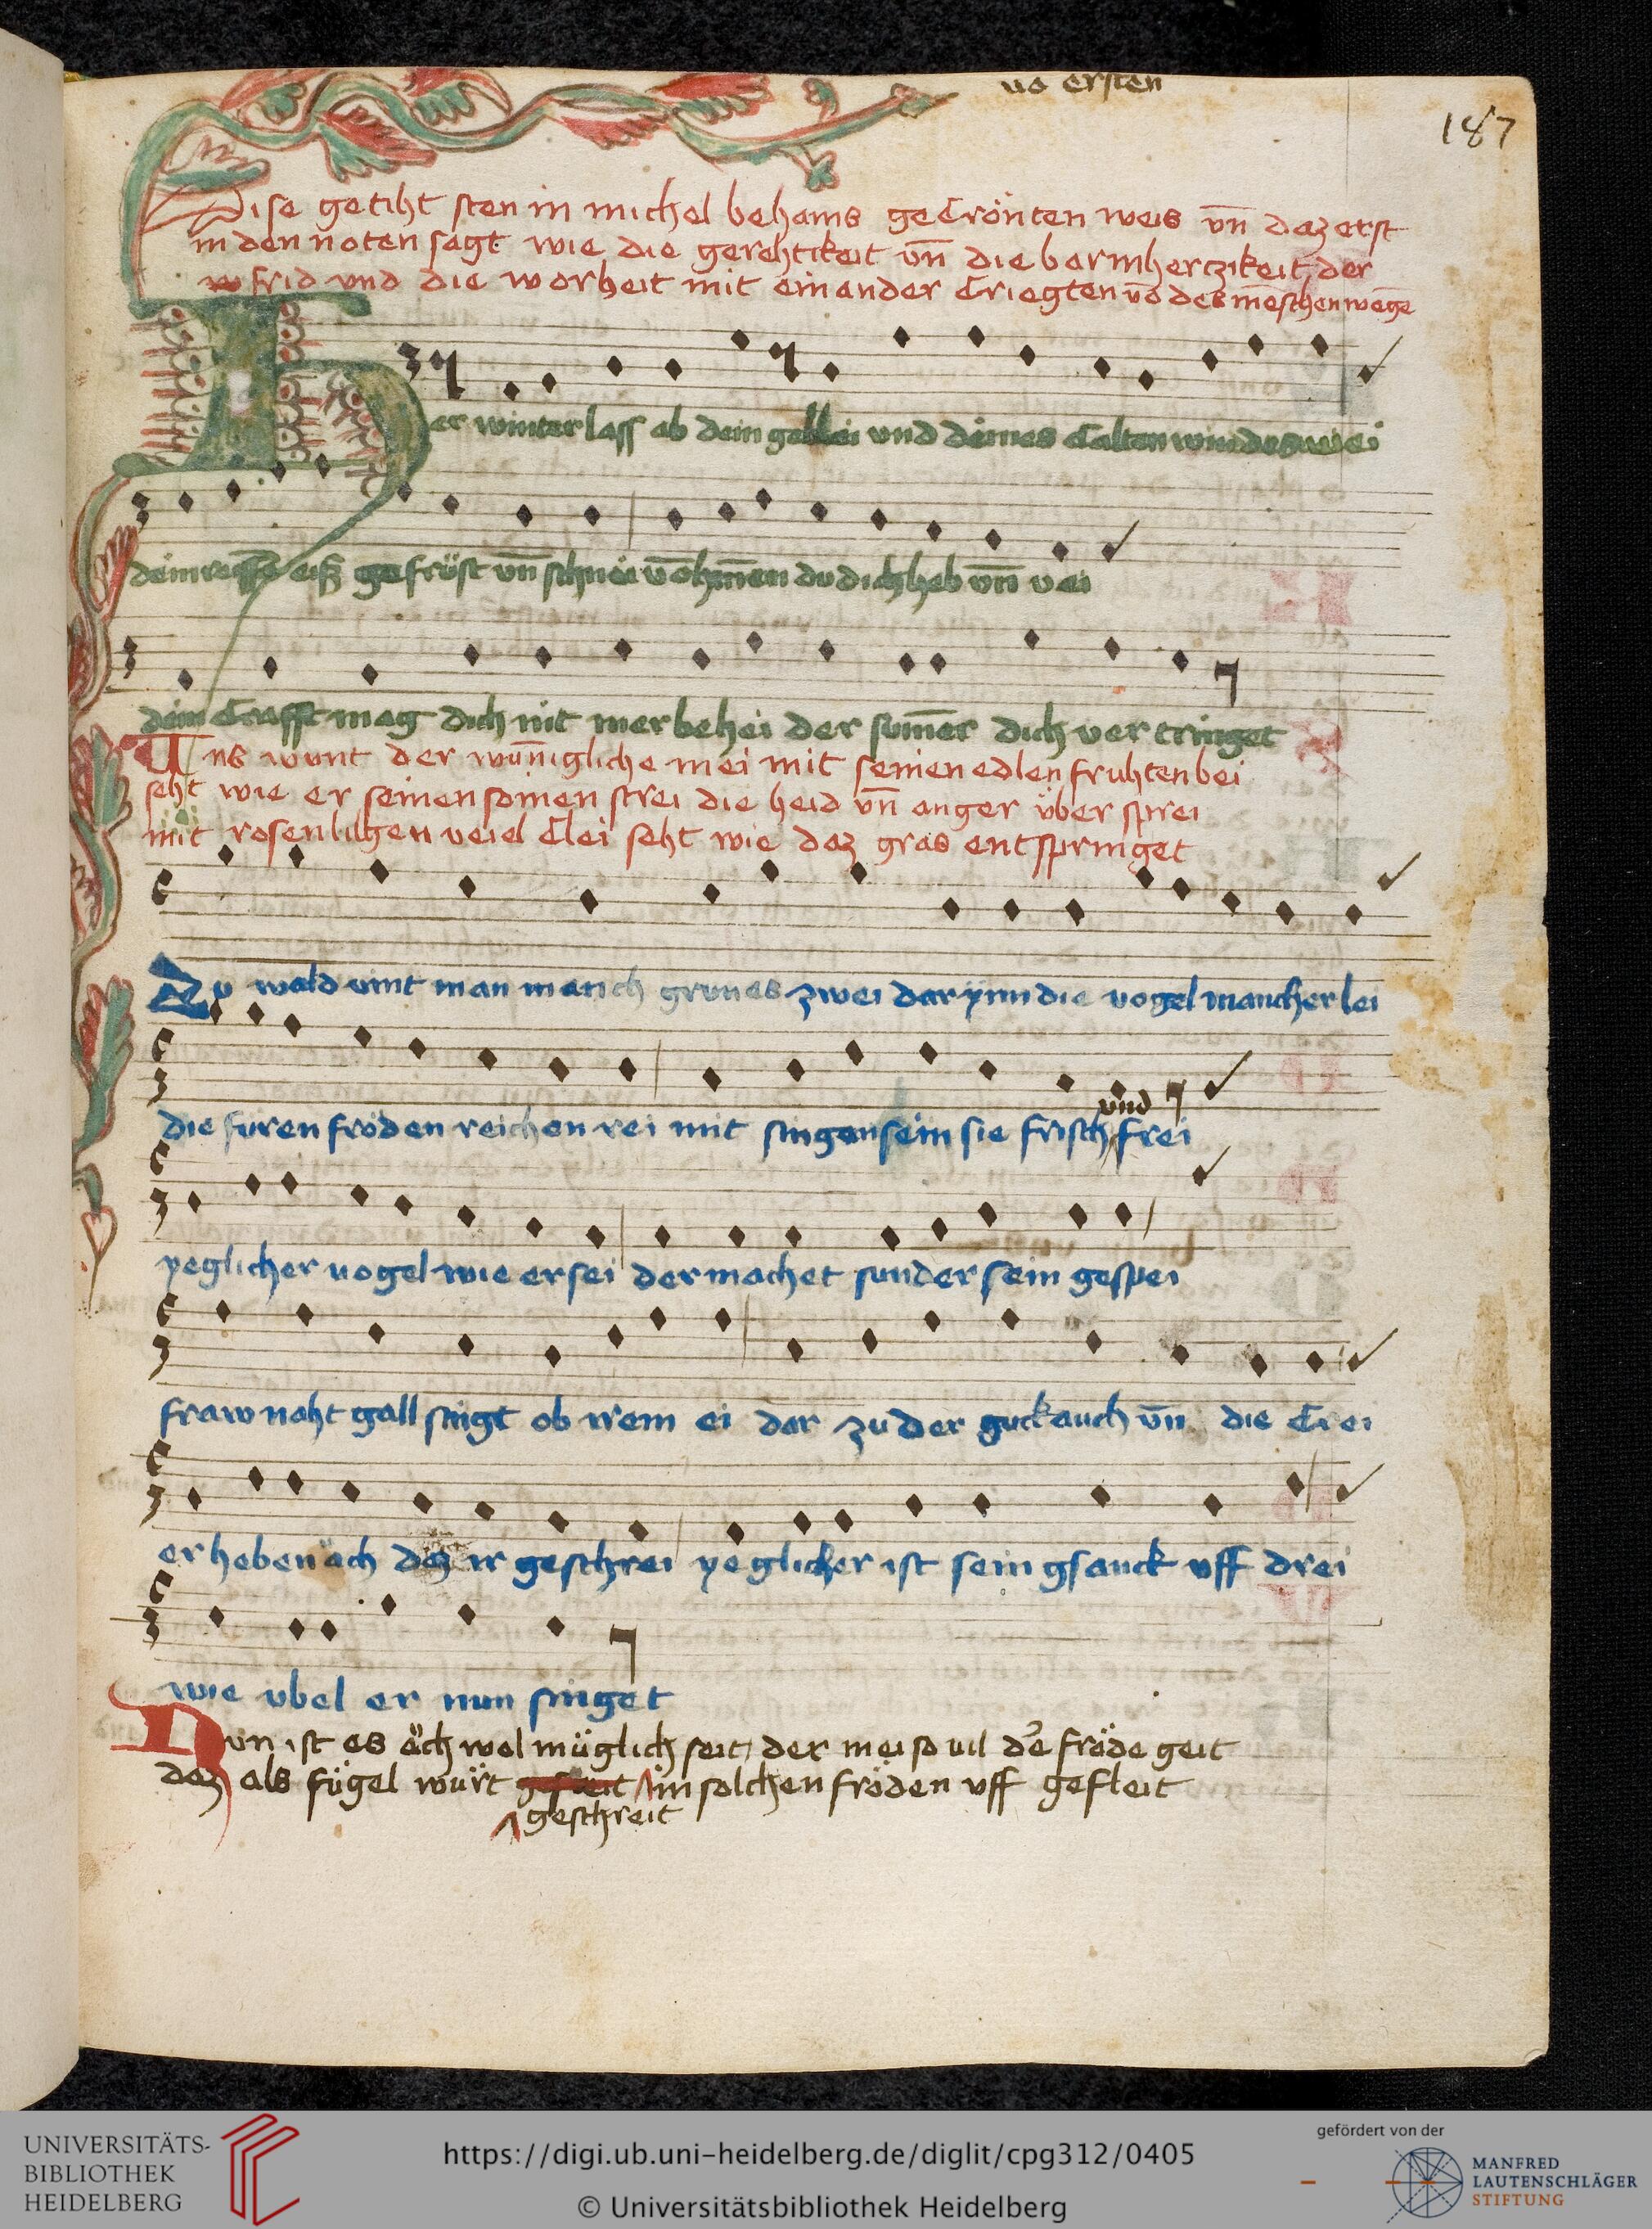 vo ersten
187
Dise getiht sten in michel behams gecrönten weis vn̄ daz erst
in den noten sagt wie die gerehtikeit vn̄ die bermherczikeit der
frid vnd die worheit mit einander criegten vō des mēschen wegē
Her winter lass ab dein
vnd deines calten windes wei
dein eiß gefrüst vn̄ schnei vō hīnen du dich heb vn̄ vei
dein crafft mag dich nit mer behei der sum̄er dich vertringet
Uns wunt der wun̄igliche mei mit seinen edlen fruhten bei
seht wie er seinen somen strei die heid vn̄ anger über sprei
mit rosen lilgen veiel clei seht wie daz gras entspringet
Zu wald vint man manch grunes zwei darynn die vogel mancherlei
die füren fröden reichen rei mit singen sein sie frisch vnd frei
yeglicher vogel wie er sei der machet sunder sein gespei
fraw nahtgall singt ob irem ei dar zu der guckauch vn̄ die crei
erheben ach daz ir geschrei yeglicher ist sein gsanck vff drei
wie vbel er nun singet
Nun ist es äch wol müglich seit der mei so vil der fröde geit
daz als fügel würt in solchen fröden vff gefleit
geschreit
UNIVERSITÄTS-
BIBLIOTHEK
HEIDELBERG
https://digi.ub.uni-heidelberg.de/diglit/cpg312/0405
© Universitätsbibliothek Heidelberg
gefördert von der
MANFRED
LAUTENSCHLÄGER
STIFTUNG